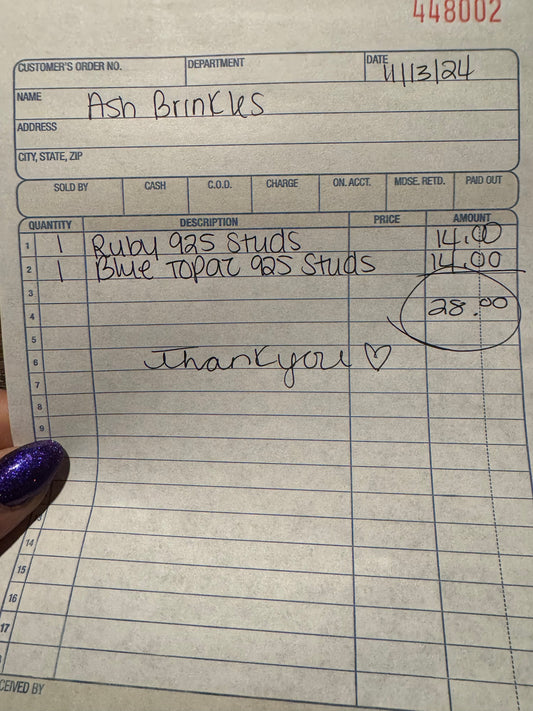 448002
CUSTOMER'S ORDER NO. DEPARTMENT DATE 11/13/24
NAME Ash Brinkles
ADDRESS
CITY, STATE, ZIP
SOLD BY CASH C.O.D. CHARGE ON. ACCT. MDSE. RETD. PAID OUT
QUANTITY DESCRIPTION PRICE AMOUNT
1 1 Ruby 925 Studs 14.00
2 1 Blue Topaz 925 Studs 14.00
3
4 28.00
5
6 Thankyou ♡
7
8
9
14
15
16
17
CEIVED BY